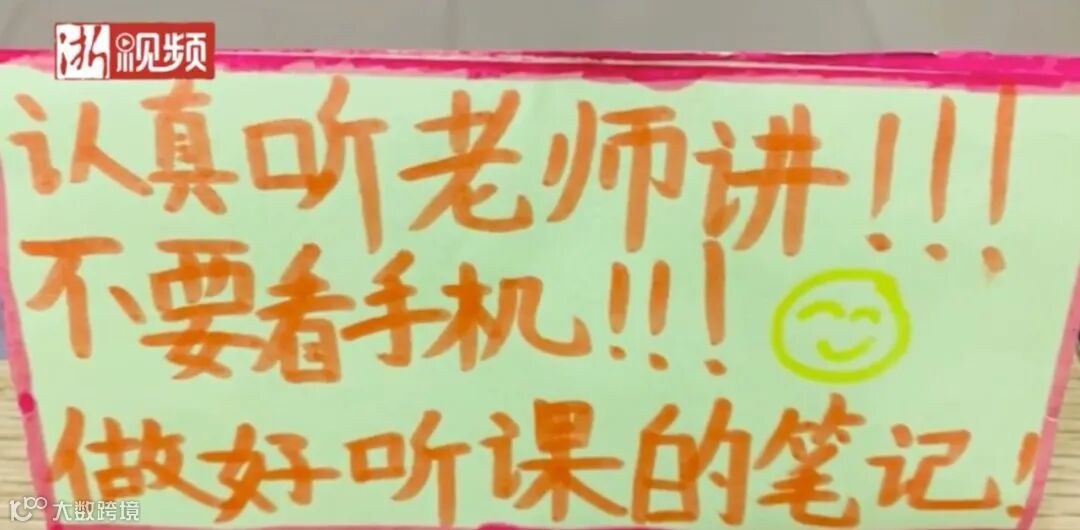 浙视频
认真听老师讲!!!
不要看手机!!!
做好听课的笔记!
大数跨境